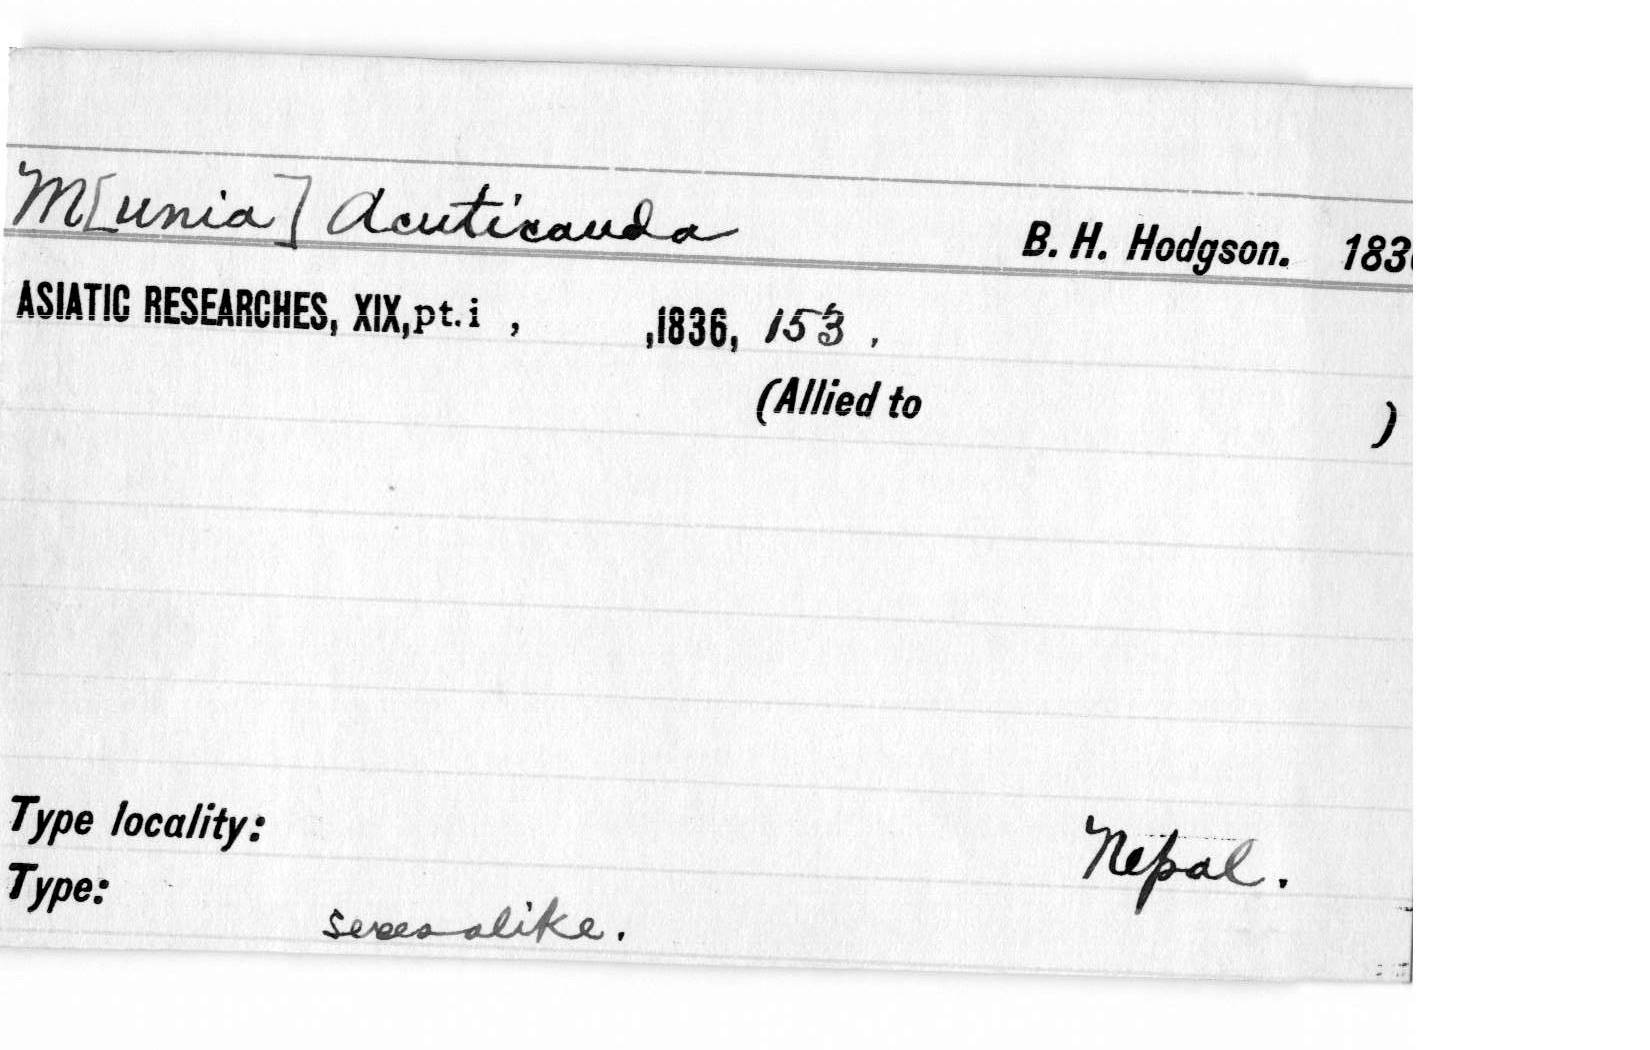 M[unia] Acuticauda
B. H. Hodgson. 183
ASIATIC RESEARCHES, XIX, pt. i , ,1836, 153 .
(Allied to )
Type locality: Nepal.
Type: sexes alike.